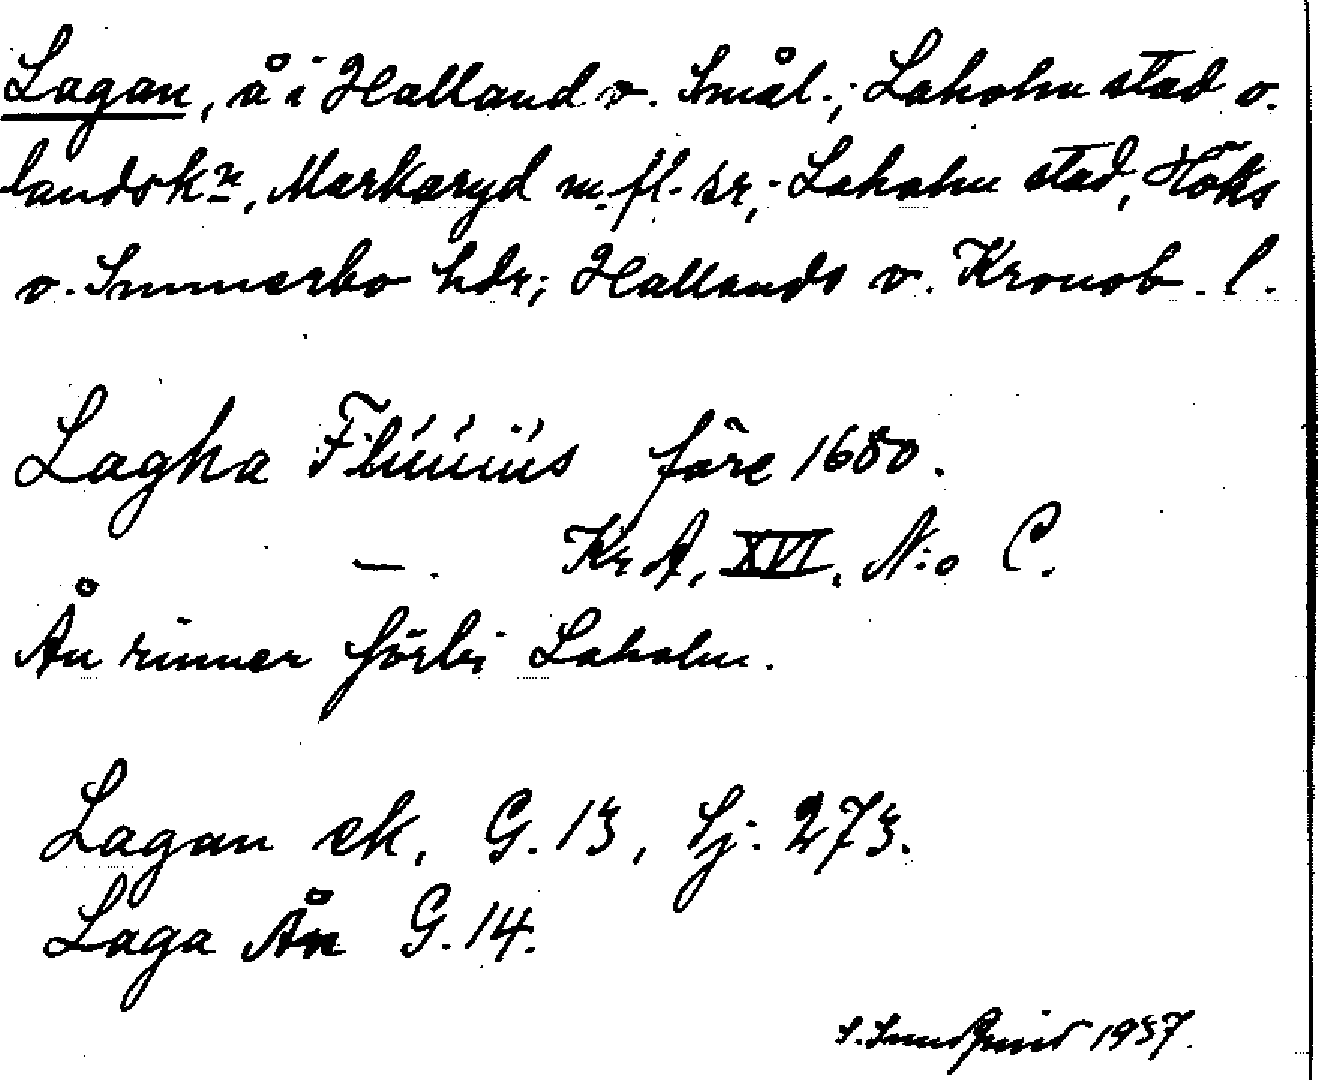 Lagan, å i Halland o. Smål.; Laholm stad o.
landskn, Markaryd m. fl. sr, Laholm stad, Höks
o. Sunnerbo hdr; Hallands o. Kronob. l.
Lagha Flúúiús före 1680.
— . Kr A, XVI, N:o C.
Ån rinner förbi Laholm.
Lagan ek, G. 13, Sj: 273.
Laga Ån G. 14.
1937.